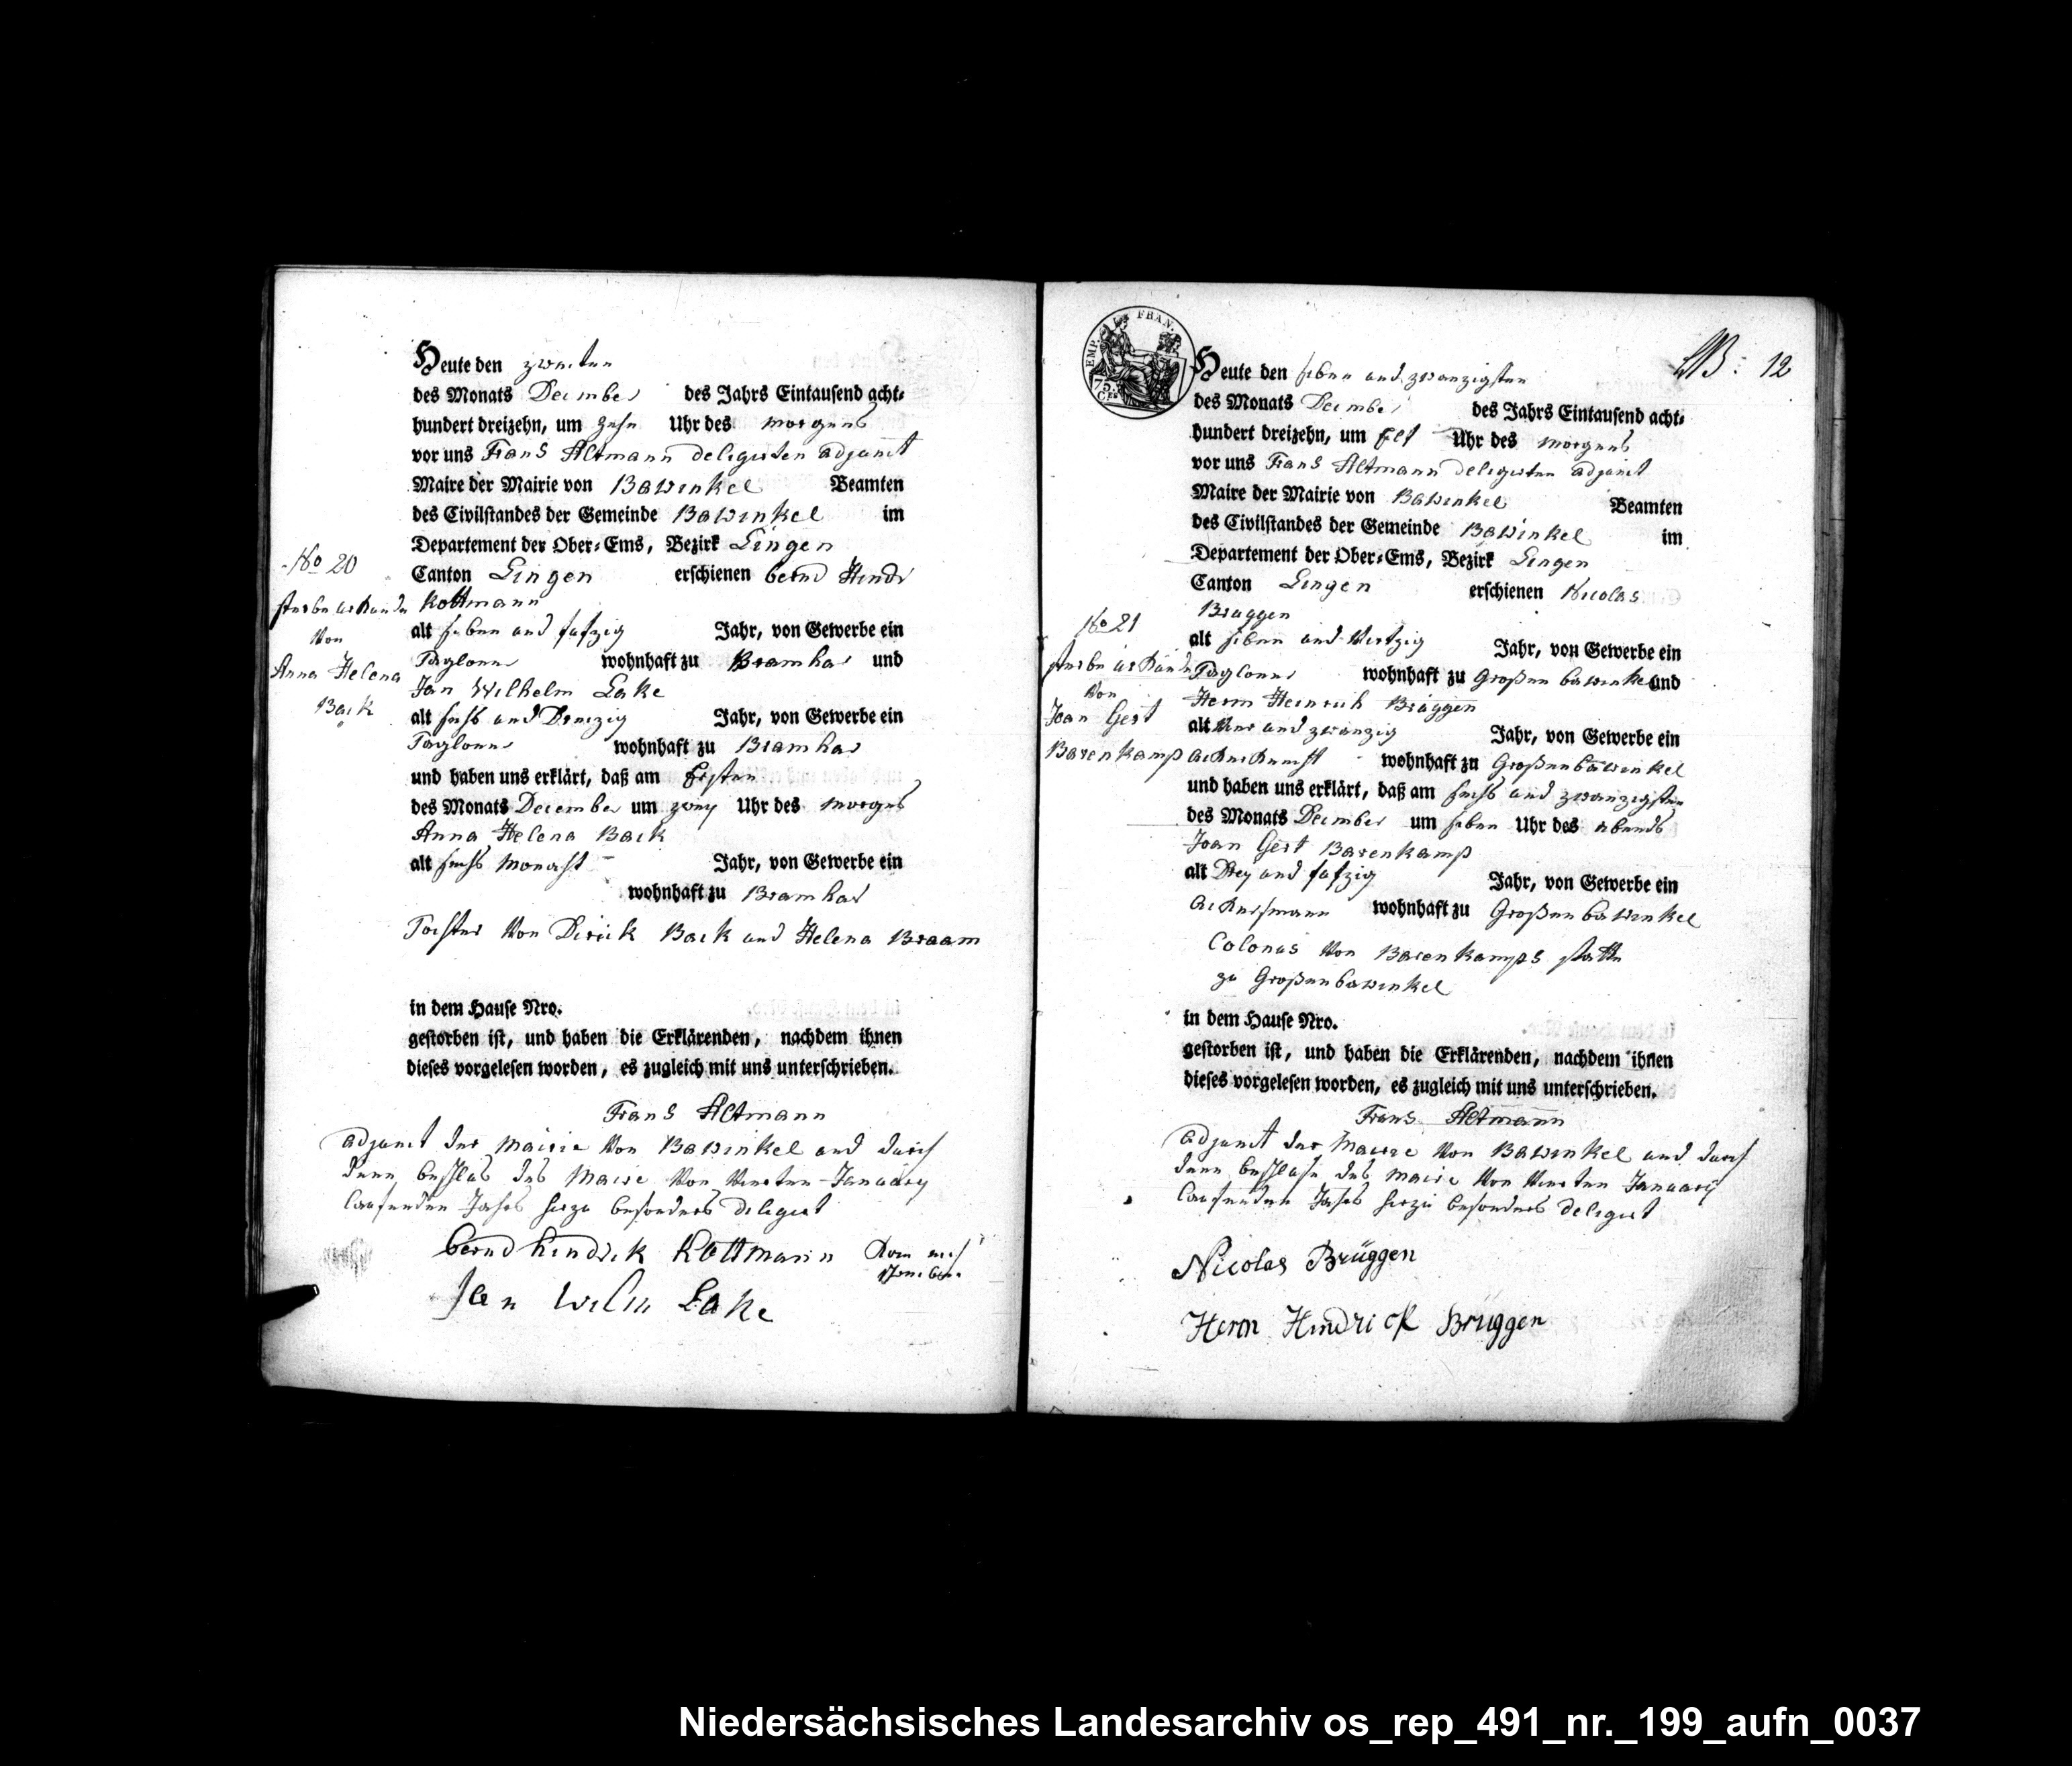 No 20
sterbe urkunde
Von
Anna Helena
Back
Heute den zweiten
des Monats December des Jahrs Eintausend acht-
hundert dreizehn, um zehn Uhr des morgens
vor uns Frans Altmann deligirten adjunct
Maire der Mairie von Bawinkel Beamten
des Civilstandes der Gemeinde Bawinkel im
Departement der Ober-Ems, Bezirk Lingen
Canton Lingen erschienen bernd Hindr
Kottmann
alt sieben und fufzig Jahr, von Gewerbe ein
Taglöner wohnhaft zu Bramhar und
Jan Wilhelm Lake
alt sechs und Dreizig Jahr, von Gewerbe ein
Taglöner wohnhaft zu Bramhar
und haben uns erklärt, daß am Ersten
des Monats December um zwey Uhr des morgens
Anna Helena Back
alt sechs Monaht Jahr, von Gewerbe ein
wohnhaft zu Bramhar
Tochter Von Dirick Back und Helena Braam
in dem Hause Nro.
gestorben ist, und haben die Erklärenden, nachdem ihnen
dieses vorgelesen worden, es zugleich mit uns unterschrieben.
Frans Altmann
adjunct der Mairie Von Bawinkel und durch
denn beschlus des Maire Von Vierten January
laufenden Jahrs hierzu besonders deligiert
bernd hindrick Kottmann
Jan Wilm Lake
EMP. FRAN.
75.
Ces
NB: 12
No 21
sterbe urkunde
Von
Joan Gert
Barenkamp
Heute den sieben und zwanzigsten
des Monats December des Jahrs Eintausend acht-
hundert dreizehn, um Elf Uhr des morgens
vor uns Frans Altmann deligirten adjunct
Maire der Mairie von Bawinkel Beamten
des Civilstandes der Gemeinde Bawinkel im
Departement der Ober-Ems, Bezirk Lingen
Canton Lingen erschienen Nicolas
Brüggen
alt sieben und Viertzig Jahr, von Gewerbe ein
Taglöner wohnhaft zu Großen bawinkel und
Herm Heinrich Brüggen
alt Vier und zwanzig Jahr, von Gewerbe ein
ackerknecht wohnhaft zu Großenbawinkel
und haben uns erklärt, daß am sechs und zwanzigsten
des Monats December um sieben Uhr des abends
Joan Gert Barenkamp
alt Drey und fufzig Jahr, von Gewerbe ein
ackersmann wohnhaft zu Großenbawinkel
Colonus Von Barenkamps statte
zu Großenbawinkel
in dem Hause Nro.
gestorben ist, und haben die Erklärenden, nachdem ihnen
dieses vorgelesen worden, es zugleich mit uns unterschrieben.
Frans Altmann
adjunct der Mairie Von Bawinkel und durch
denn beschluß des Maire Von Vierten January
laufenden Jahrs hierzu besonders deligiert
Nicolas Brüggen
Herm Hindrick Brüggen
Niedersächsisches Landesarchiv os_rep_491_nr._199_aufn_0037